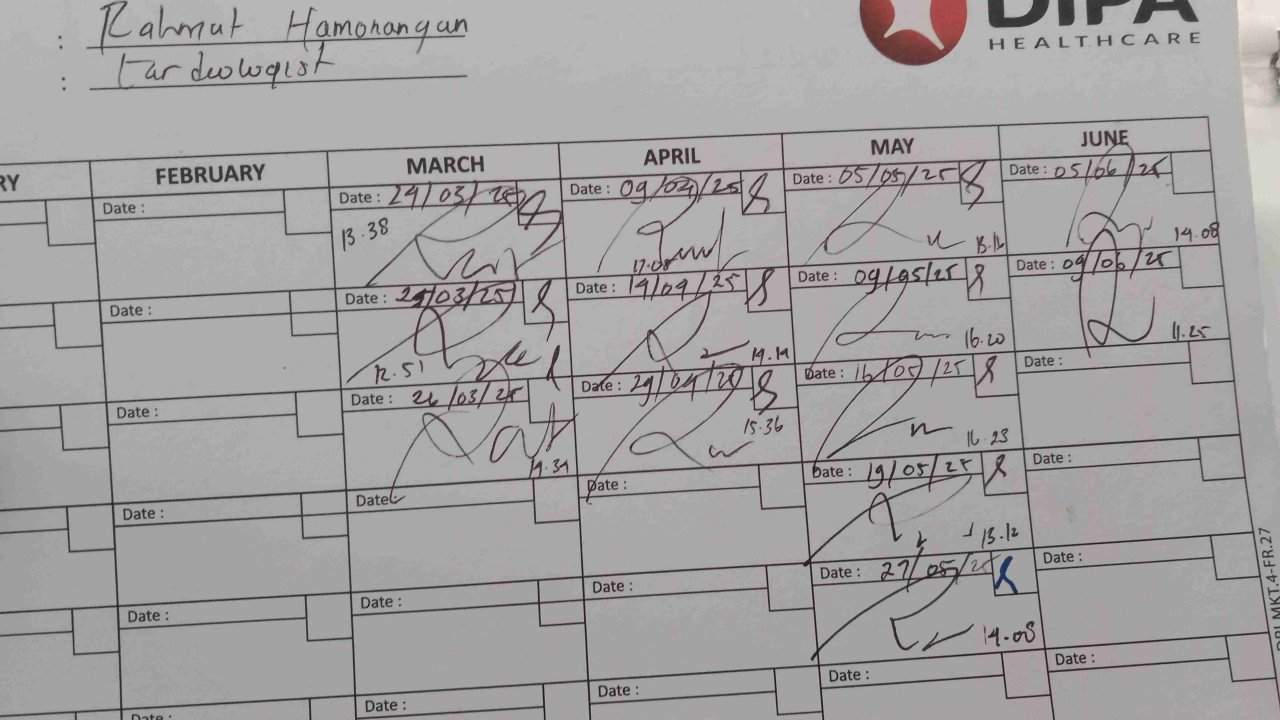 : Rahmut Hamonangan
: Kardeologist
DIPA
HEALTHCARE
RY FEBRUARY MARCH APRIL MAY JUNE
Date : Date : 24/03/25 Date : 09/04/25 Date : 05/05/25 Date : 05/06/25
13.38 17.08 13.12 14.08
Date : Date : 25/03/25 Date : 19/04/25 Date : 09/05/25 Date : 09/06/25
12.51 14.19 16.20 11.25
Date : Date : 26/03/25 Date : 29/04/25 Date : 16/05/25 Date :
14.34 15.36 16.23
Date : Date : Date : Date : 19/05/25 Date :
13.12
Date : Date : Date : Date : 27/05/25 Date :
14.08
Date : Date : Date : Date : Date :
MKT.4-FR.27